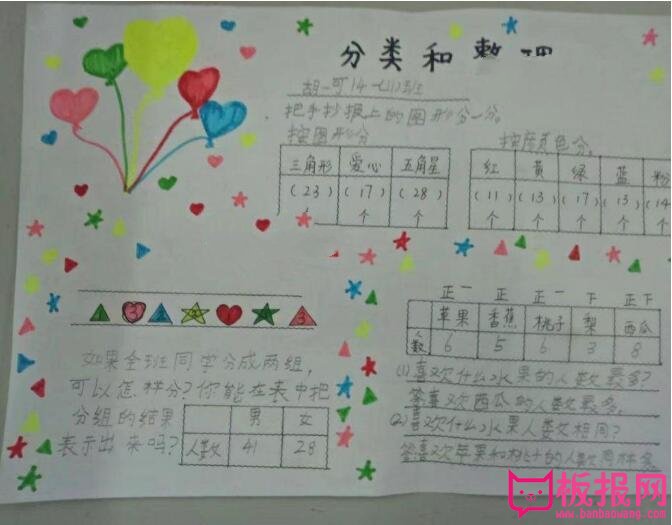 分类和整理
胡一可 14-(11)班
把手抄报上的图形分一分。
按图形分
三角形 爱心 五角星
(23)个 (17)个 (28)个
按颜色分。
红 黄 绿 蓝 粉
(11)个 (13)个 (17)个 (13)个 (14
1 3 2 3
如果全班同学分成两组,
可以怎样分?你能在表中把
分组的结果
表示出来吗?
男 女
人数 41 28
正一 正 正一 下 正下
苹果 香蕉 桃子 梨 西瓜
人数 6 5 6 3 8
(1)喜欢什么水果的人数最多?
答喜欢西瓜的人数最多。
(2)喜欢什么水果人数相同?
答喜欢苹果和桃子的人数同样多
板报网
www.banbaowang.com